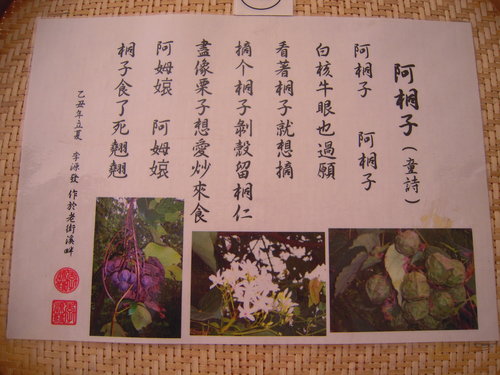 阿桐子(童詩)
阿桐子 阿桐子
白核牛眼也過願
看著桐子就想摘
摘个桐子剝殼留桐仁
盡像栗子想愛炒來食
阿姆娘 阿姆娘
桐子食了死翹翹
乙丑年立夏 李源發 作於老街溪畔